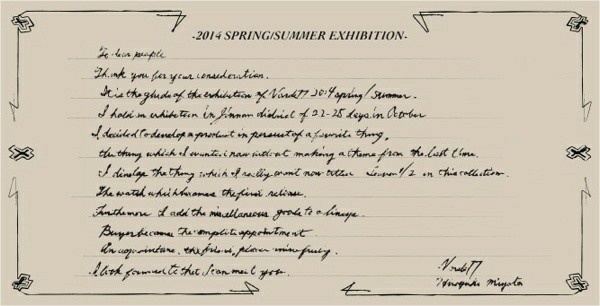 -2014 SPRING/SUMMER EXHIBITION-
To dear people
Thank you for your consideration.
It is the guide of the exhibition of 2014 spring/summer.
I hold an exhibition in Jinnan district of 22-25 days in October
I decided to develop a product in persuest of a favorite thing.
the thing which I want now without making a theme from the last time.
I develop the thing which I really want now in this collection.
The watch which becomes the first release.
Furthermore I add the miscellaneous goods to a lineup.
Buyer became the complete appointment
An appointment, the please, freely.
I look forward to that I can meet you.
Hiroyuki Miyata